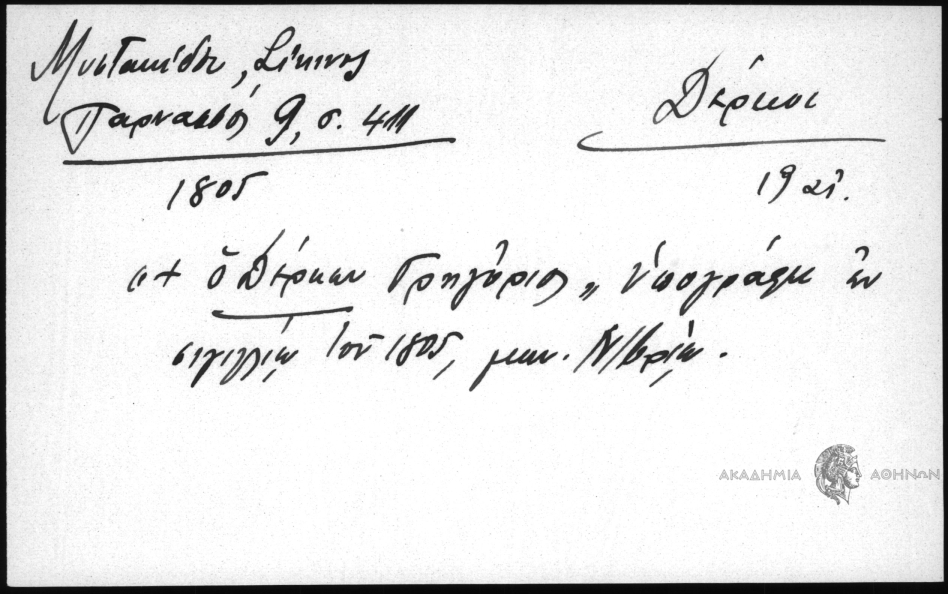 Μυστακίδου, Σίκινος
Παρνασσός 9, σ. 411
Δέρκοι
1805
19 αἰ.
«+ ὁ Δέρκων Γρηγόριος„ ὑπογράφει ἐν
σιγιλλίῳ τοῦ 1805, μην. Ν/βρίῳ.
ΑΚΑΔΗΜΙΑ ΑΘΗΝΩΝ